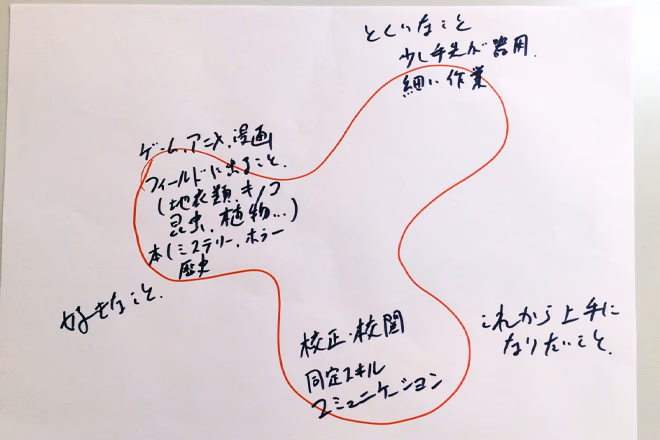 とくいなこと
少し手先が器用.
細い作業
ゲーム、アニメ、漫画
フィールドに出ること、
(地衣類、キノコ
昆虫、植物…)
本(ミステリー、ホラー
歴史
好きなこと.
校正・校閲
同定スキル
コミュニケーション
これから上手に
なりたいこと.